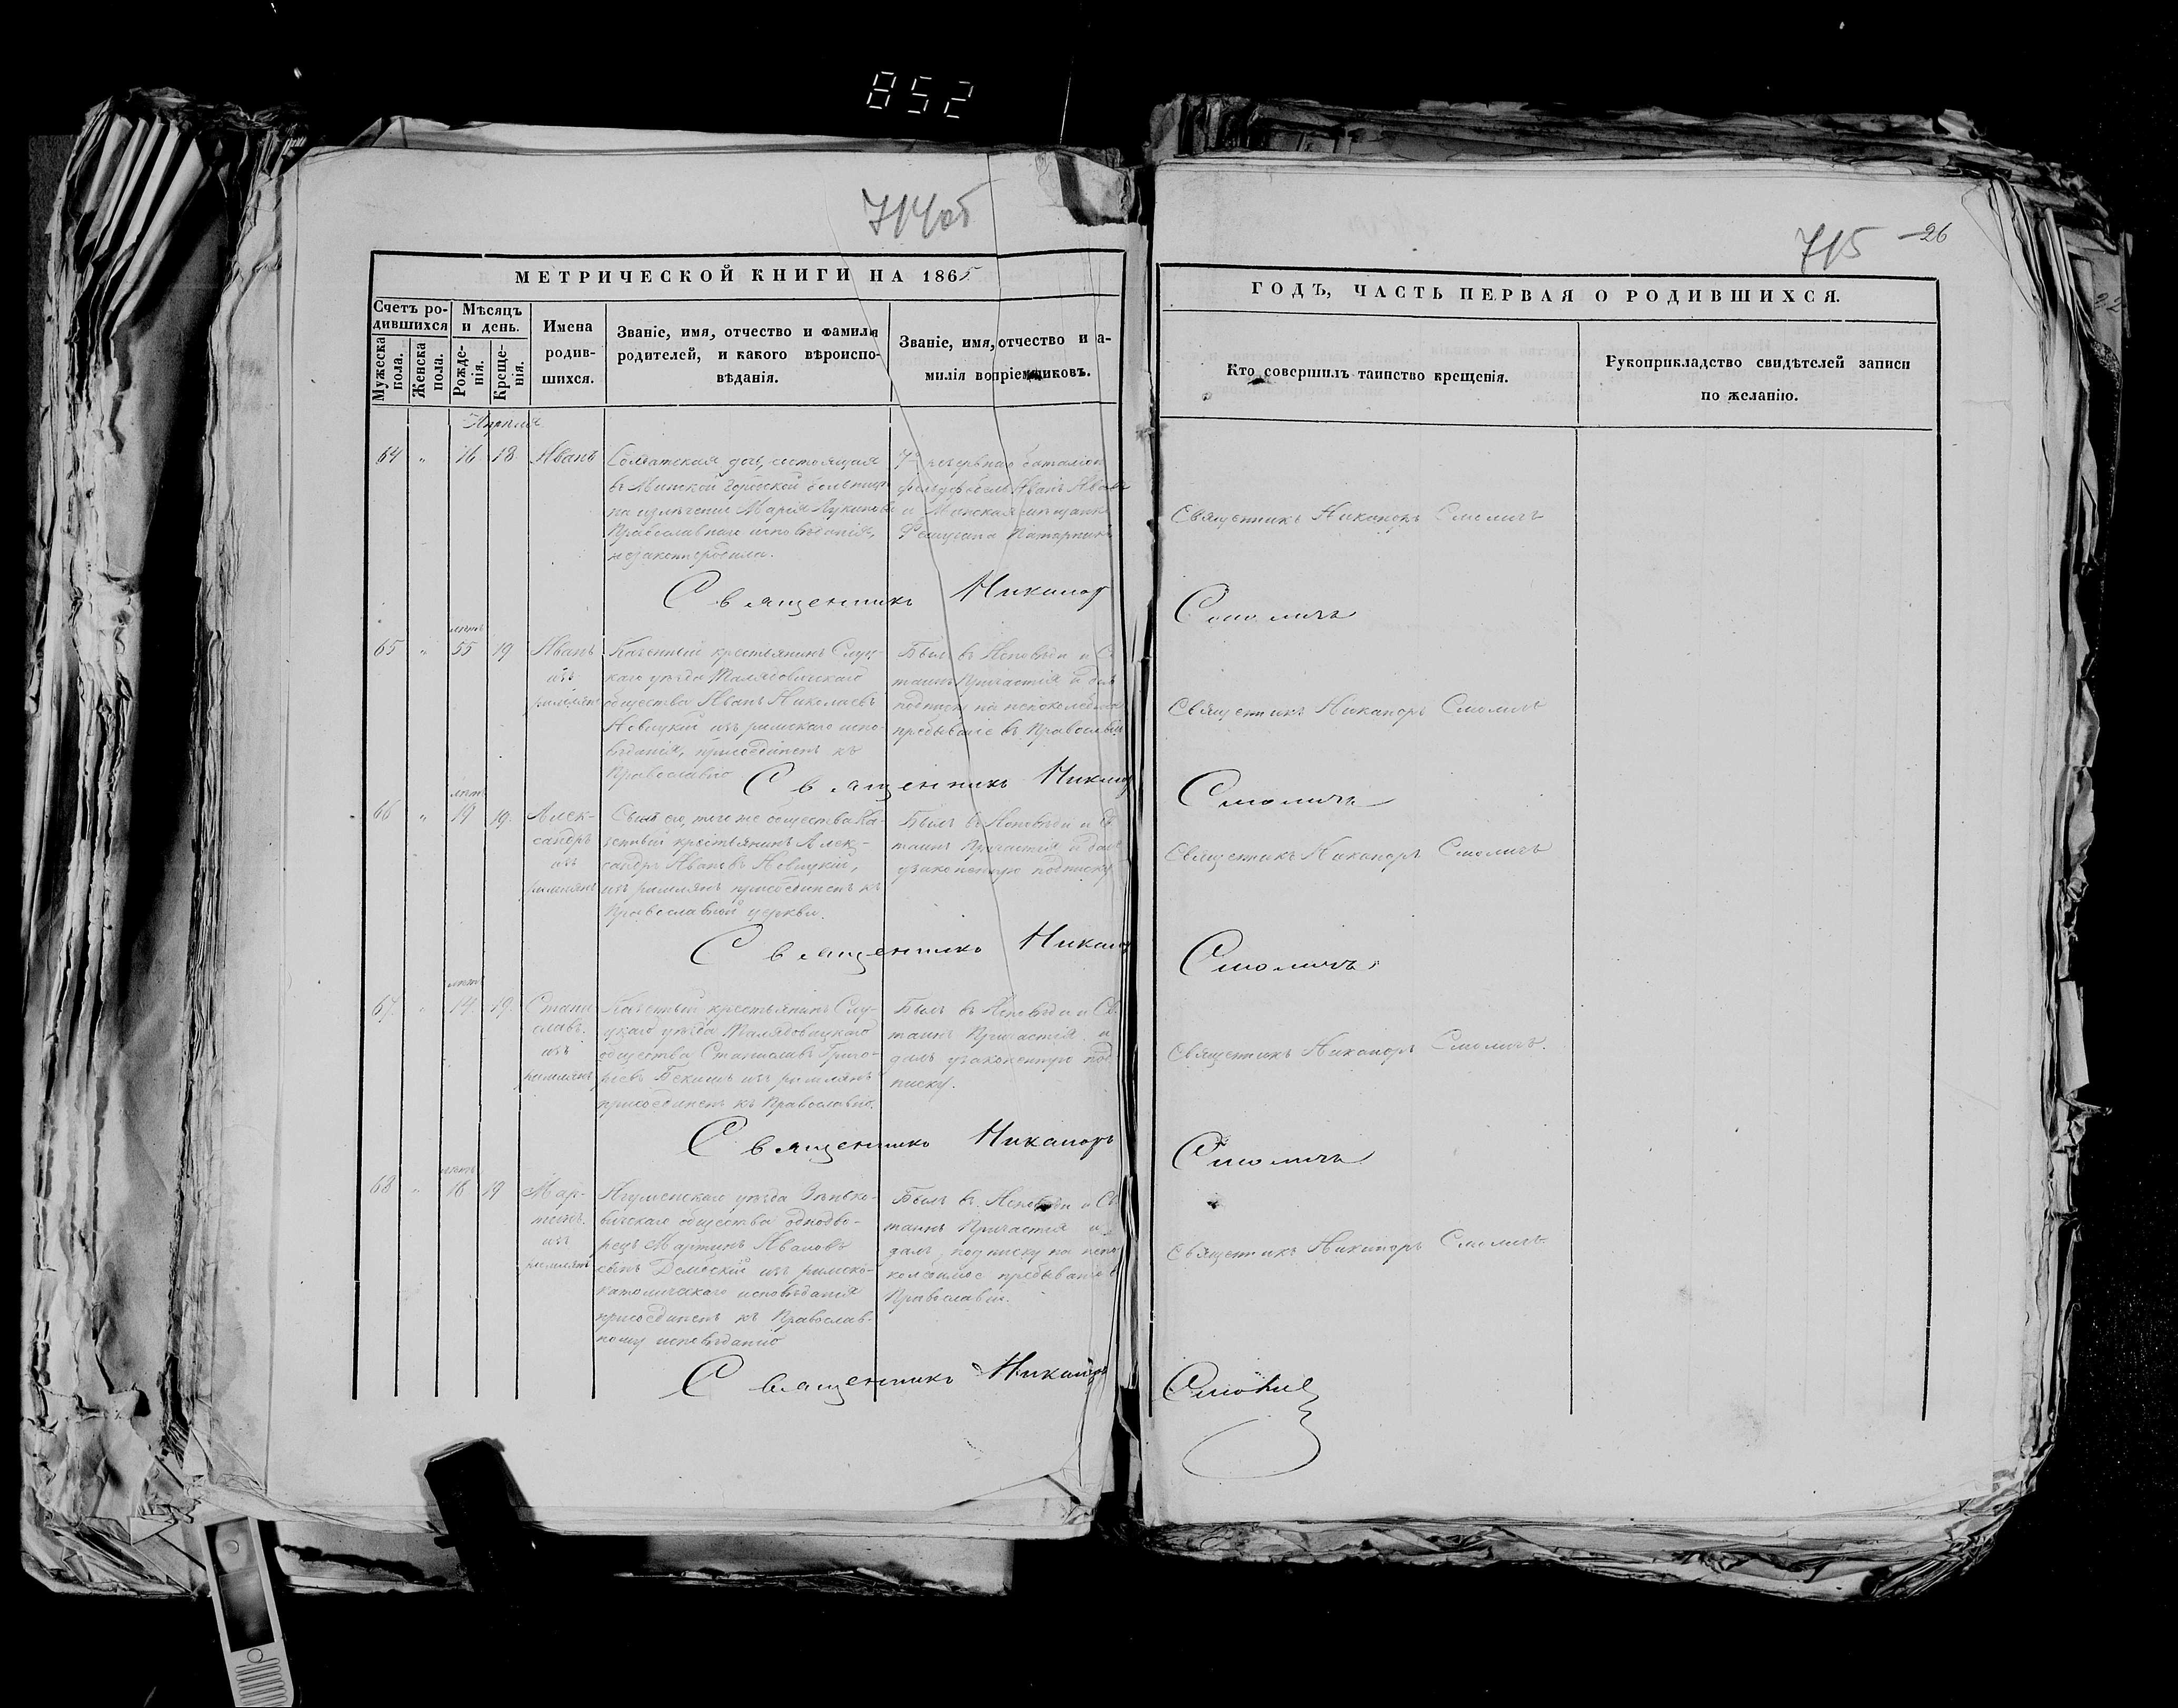 852
714об
715 26
МЕТРИЧЕСКОЙ КНИГИ НА 1865
Счетъ ро-
дившихся
Мужеска
пола.
Женска
пола.
Мѣсяцъ
и день.
Рожде-
нія.
Креще-
нія.
Имена
родив-
шихся.
Званіе, имя, отчество и фамилія
родителей, и какого вѣроиспо-
вѣданія.
Званіе, имя, отчество и фа-
милія вопріемниковъ.
ГОДЪ, ЧАСТЬ ПЕРВАЯ О РОДИВШИХСЯ.
Кто совершилъ таинство крещенія.
Рукоприкладство свидѣтелей записи
по желанію.
Апрѣля
64 " 16 18 Иванъ
Солдатская дочь, состоящая
въ Минской городской больницѣ
на излѣченіи Марія Лукинова
Православнаго исповѣданія,
незаконнородила.
7го резервнаго баталіона
фельдфебель Иванъ
и Минская мѣщанка
Священникъ Никаноръ Смоличъ
Священникъ Никаноръ Смоличъ
65 " лѣтъ 55 19 Иванъ
изъ
римлянъ
Казенный крестьянинъ Слуц-
каго уѣзда
общества Иванъ Николаевъ
Новицкій изъ римскаго испо-
вѣданія, присоединенъ къ
Православію
Былъ въ Исповѣди и Св.
таинъ Причастія и далъ
подписку на непоколебимое
пребываніе въ Православіи
Священникъ Никаноръ Смоличъ
Священникъ Никаноръ Смоличъ
66 " лѣтъ 19 19. Алек-
сандръ
изъ
римлянъ
Сынъ его, того же общества ка-
зенный крестьянинъ Алек-
сандръ Ивановъ Новицкій,
изъ римлянъ присоединенъ къ
Православной церкви.
Былъ въ Исповѣди и Св.
таинъ Причастія и далъ
узаконенную подписку
Священникъ Никаноръ Смоличъ
Священникъ Никаноръ Смоличъ
67. " лѣтъ 14 19. Стани
славъ.
изъ
римлянъ
Казенный крестьянинъ Слу-
цкаго уѣзда
общества Станиславъ Григо-
рьевъ изъ римлянъ
присоединенъ къ Православію.
Былъ въ Исповѣди и Св.
таинъ Причастія и
далъ узаконенную под
писку.
Священникъ Никаноръ Смоличъ.
Священникъ Никаноръ Смоличъ
68 " лѣтъ 16 19 Мар-
тинъ.
изъ
римлянъ
Игуменскаго уѣзда
общества однодво-
рецъ Мартинъ Ивановъ
сынъ изъ римско-
католическаго исповѣданія
присоединенъ къ Православ-
ному исповѣданію
Былъ въ Исповѣди и Св.
таинъ Причастія и
далъ подписку на непо
колебимое пребываніе въ
Православіи.
Священникъ Никаноръ Смоличъ
Священникъ Никаноръ Смоличъ